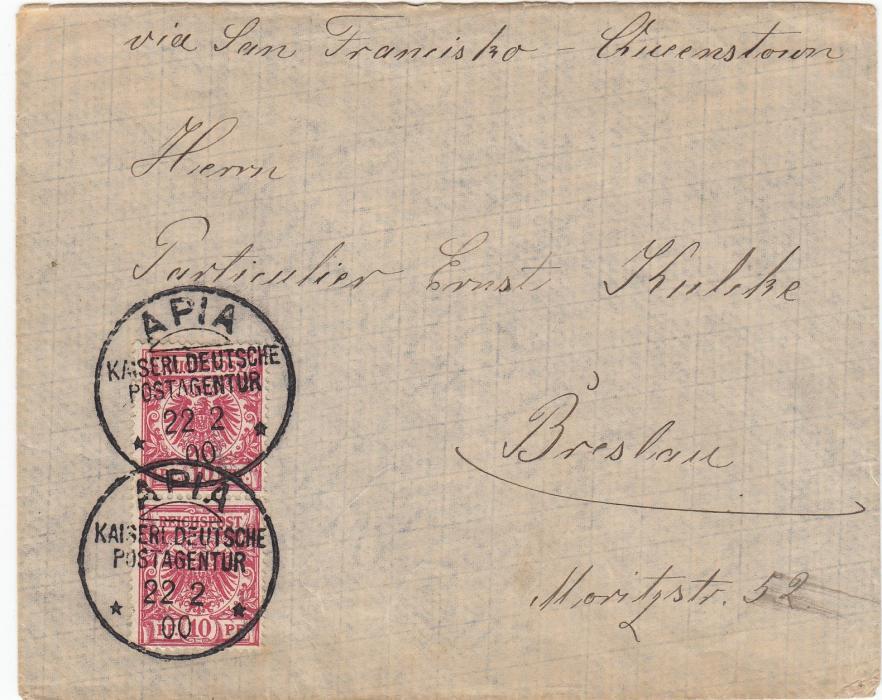 via San Francisko – Queenstown
Herrn
Particulier Ernst Kulke
APIA
KAISERL. DEUTSCHE
POSTAGENTUR
22 2
00
Breslau
APIA
REICHSPOST
KAISERL. DEUTSCHE
POSTAGENTUR
22 2
00
PF 10 PF
Moritzstr. 52